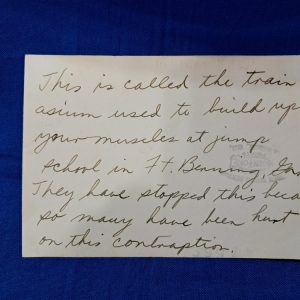 This is called the train
asium used to build up
your muscles at jump
school in Ft. Benning,
They have stopped this beca
so many have been hurt
on this contraption.